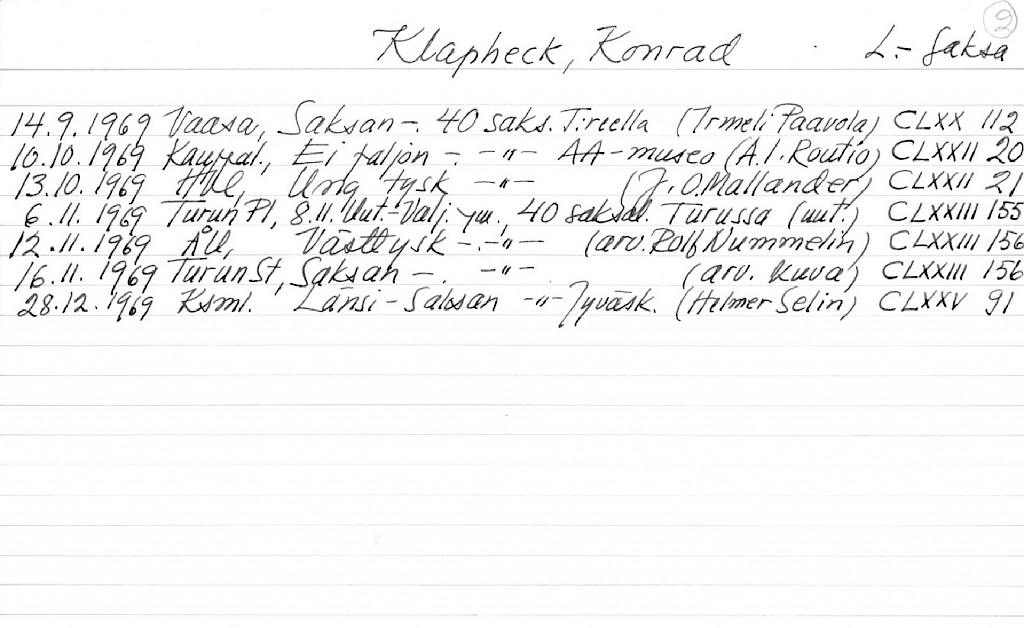 2
Klapheck, Konrad L.- Saksa
14.9.1969 Vaasa, Saksan -. 40 saks. T:reella (Irmeli Paavola) CLXX 112
10.10.1969 Kauppal., Ei paljon -. -"- AA-museo (A.I. Routio) CLXXII 20
13.10.1969 Hbl, Ung tysk -"- (J.O. Mallander) CLXXII 21
6.11.1969 Turun Pl, 8.11. Uut.-Valj. ym, 40 saksal. Turussa (uut.) CLXXIII 155
12.11.1969 ÅU, Västtysk -.-"- (arv. Rolf Nummelin) CLXXIII 156
16.11.1969 Turun St, Saksan -. -"- (arv. kuva) CLXXIII 156
28.12.1969 Ksml. Länsi-Saksan -"- Jyväsk. (Hilmer Selin) CLXXV 91